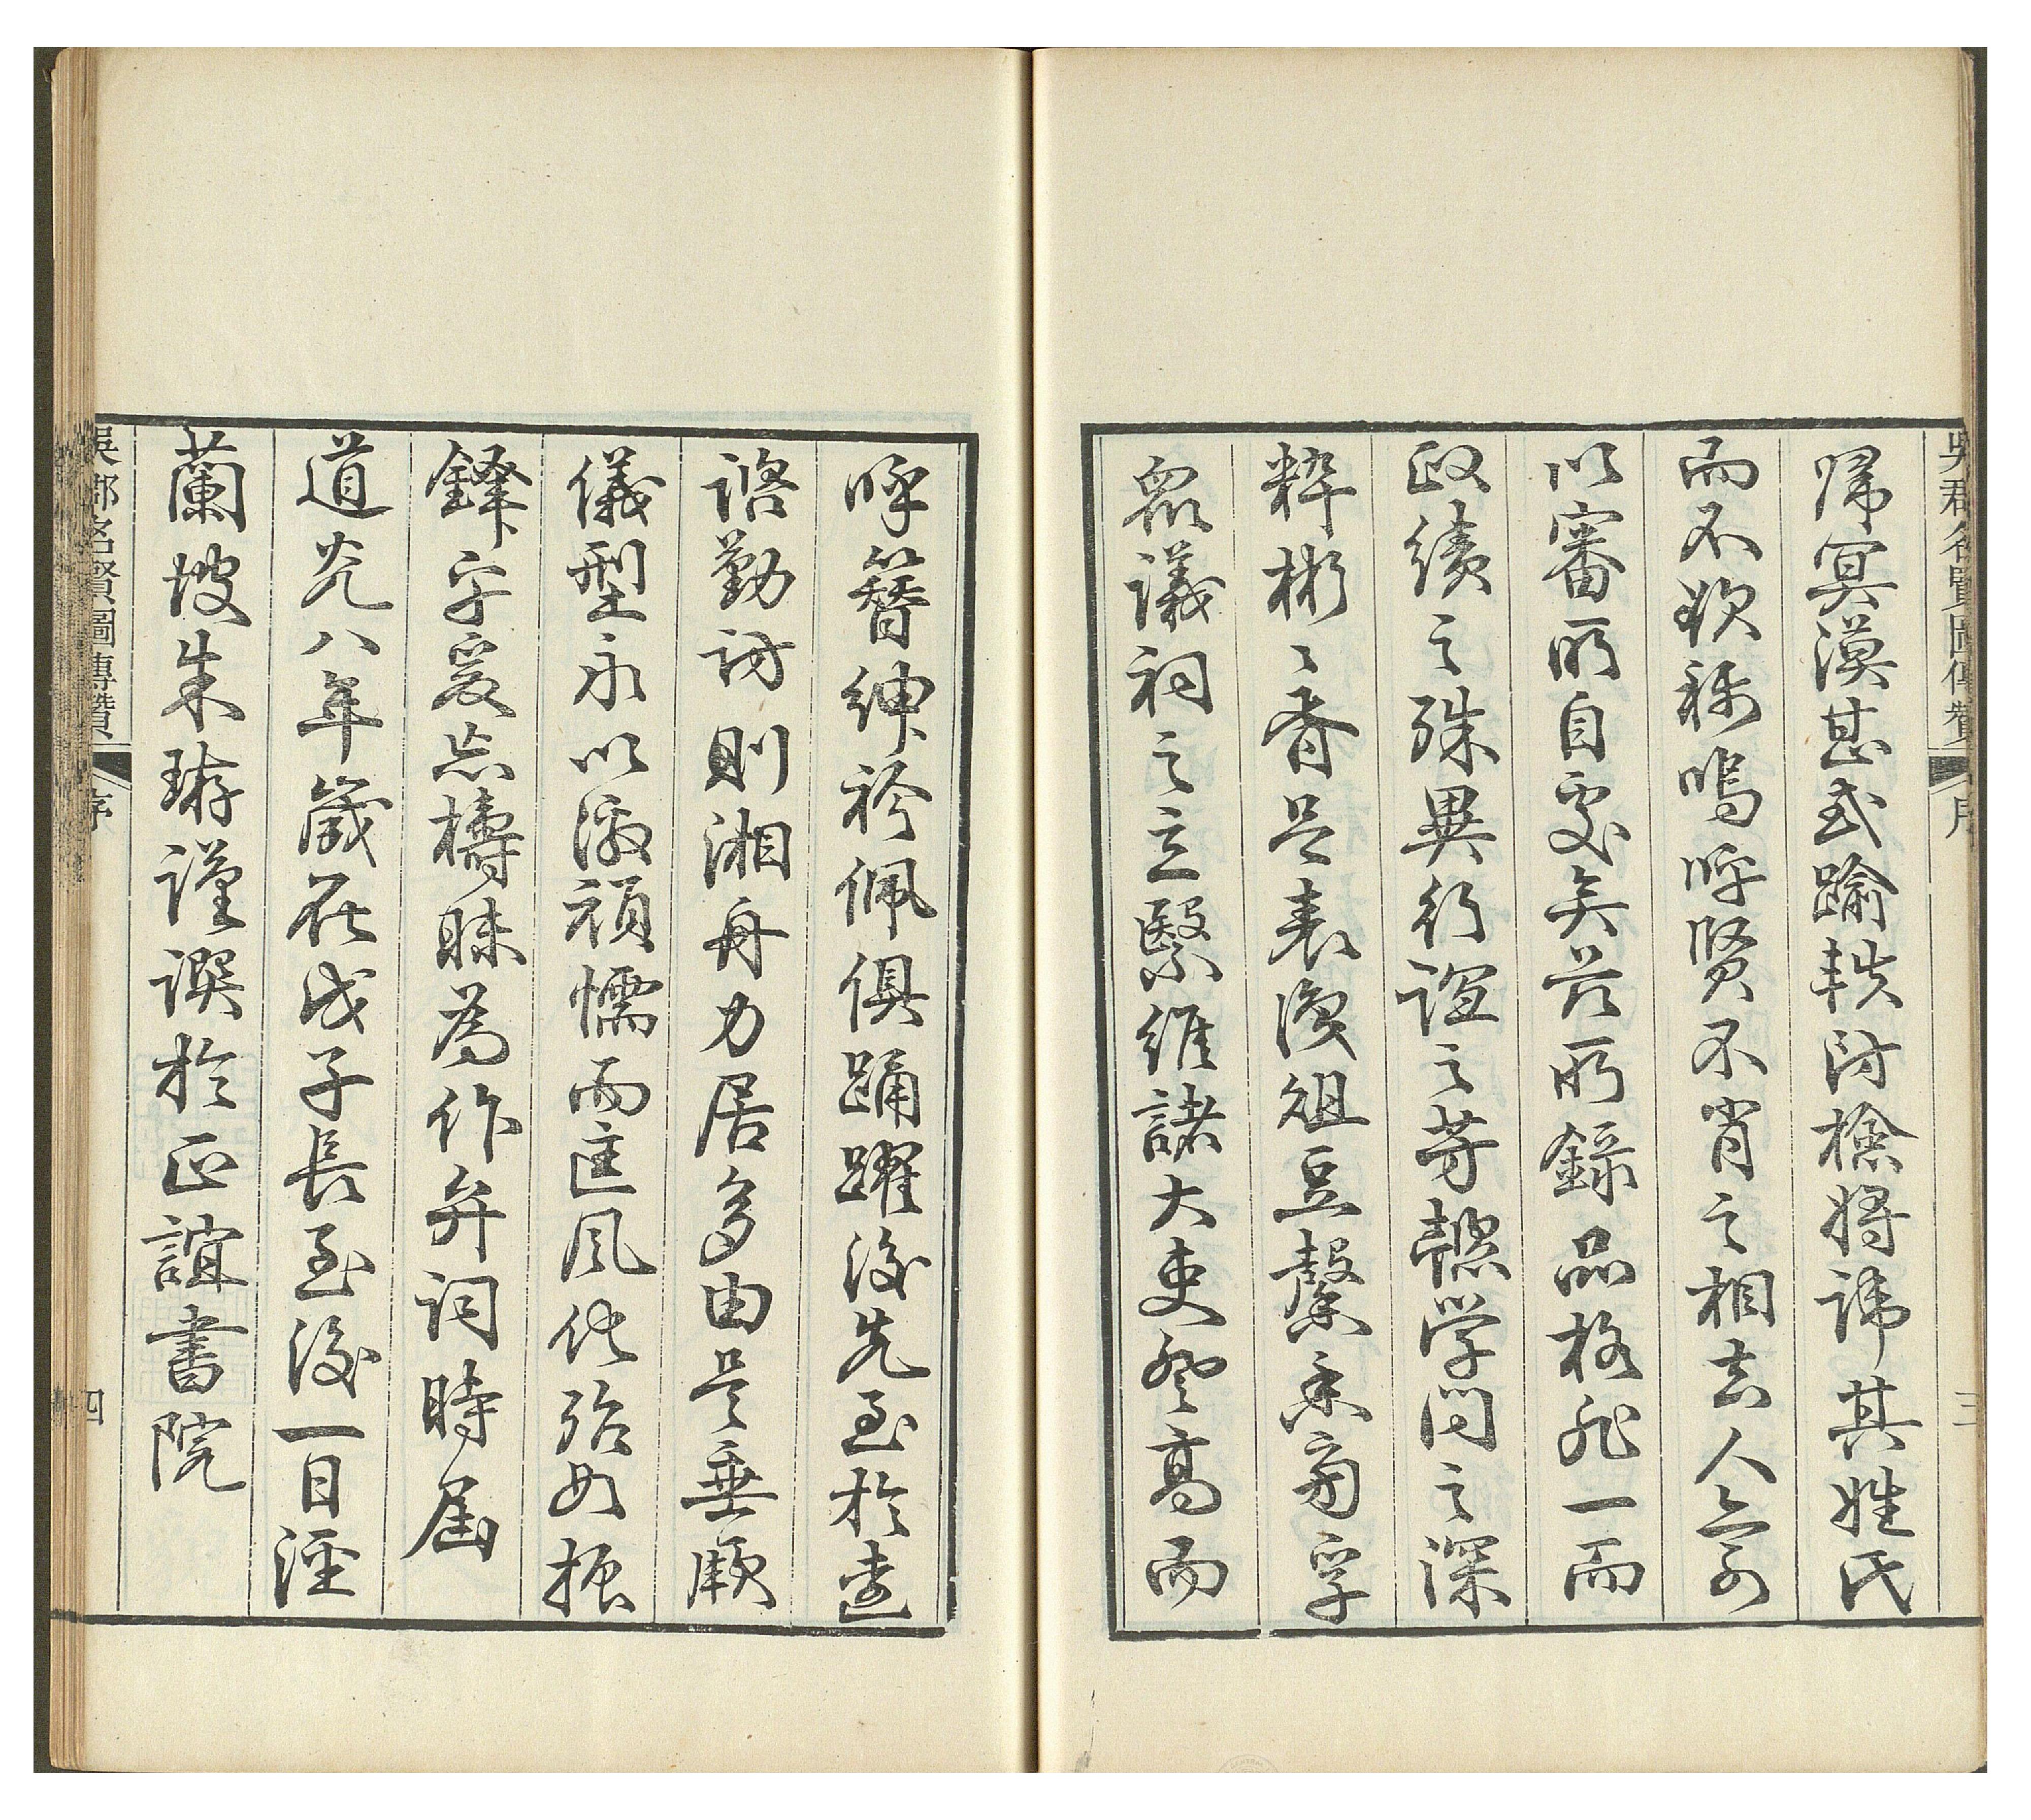 吳郡名賢圖傳贊
序
三
歸冥漠甚或踰軼防檢將諱其姓氏
而不欲稱嗚呼賢不肖之相去人亦可
以審所自處矣茲所錄品格非一而
政績之殊異行誼之芳馨學問之深
粹彬彬者足表後俎豆馨香齋孚
眾議祠之立繄維諸大吏登高而
呼簪紳衿佩俱踴躍後先至於遠
諮勤訪則湘舟力居多由是垂厥
儀型永以激頑懦而匡風化殆如振
鐸字爰忘檮昧為作弁詞時屆
道光八年歲在戊子長至後一日涇
蘭坡朱珔謹譔於正誼書院
吳郡名賢圖傳贊
序
四